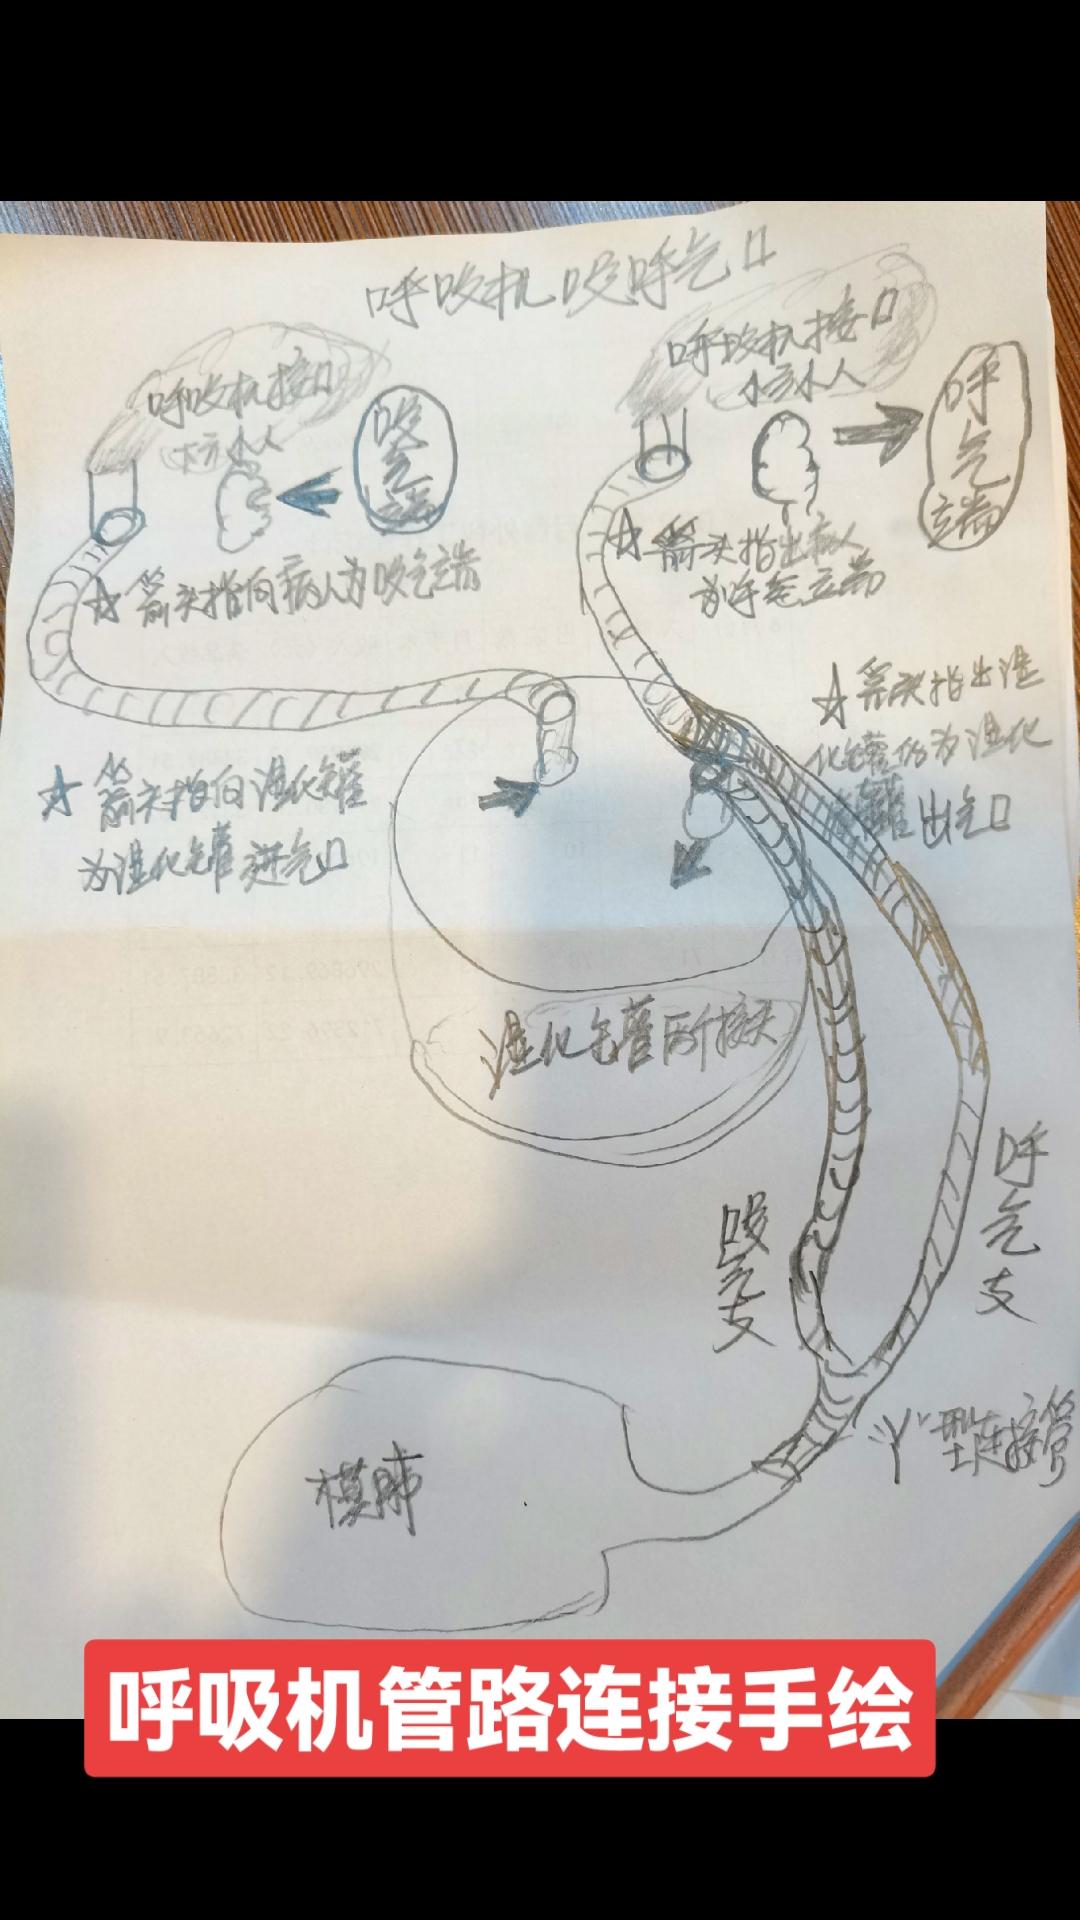 呼吸机吸呼气口
呼吸机接口
小人
吸气端
☆ 箭头指向病人为吸气端
呼吸机接口
小人
呼气端
☆ 箭头指出病人
为呼气端
☆ 箭头指向湿化罐
为湿化罐进气口
☆ 箭头指出湿
化罐仍为湿化
罐出气口
湿化罐两个接头
吸气支
呼气支
"Y"型连接管
模肺
呼吸机管路连接手绘